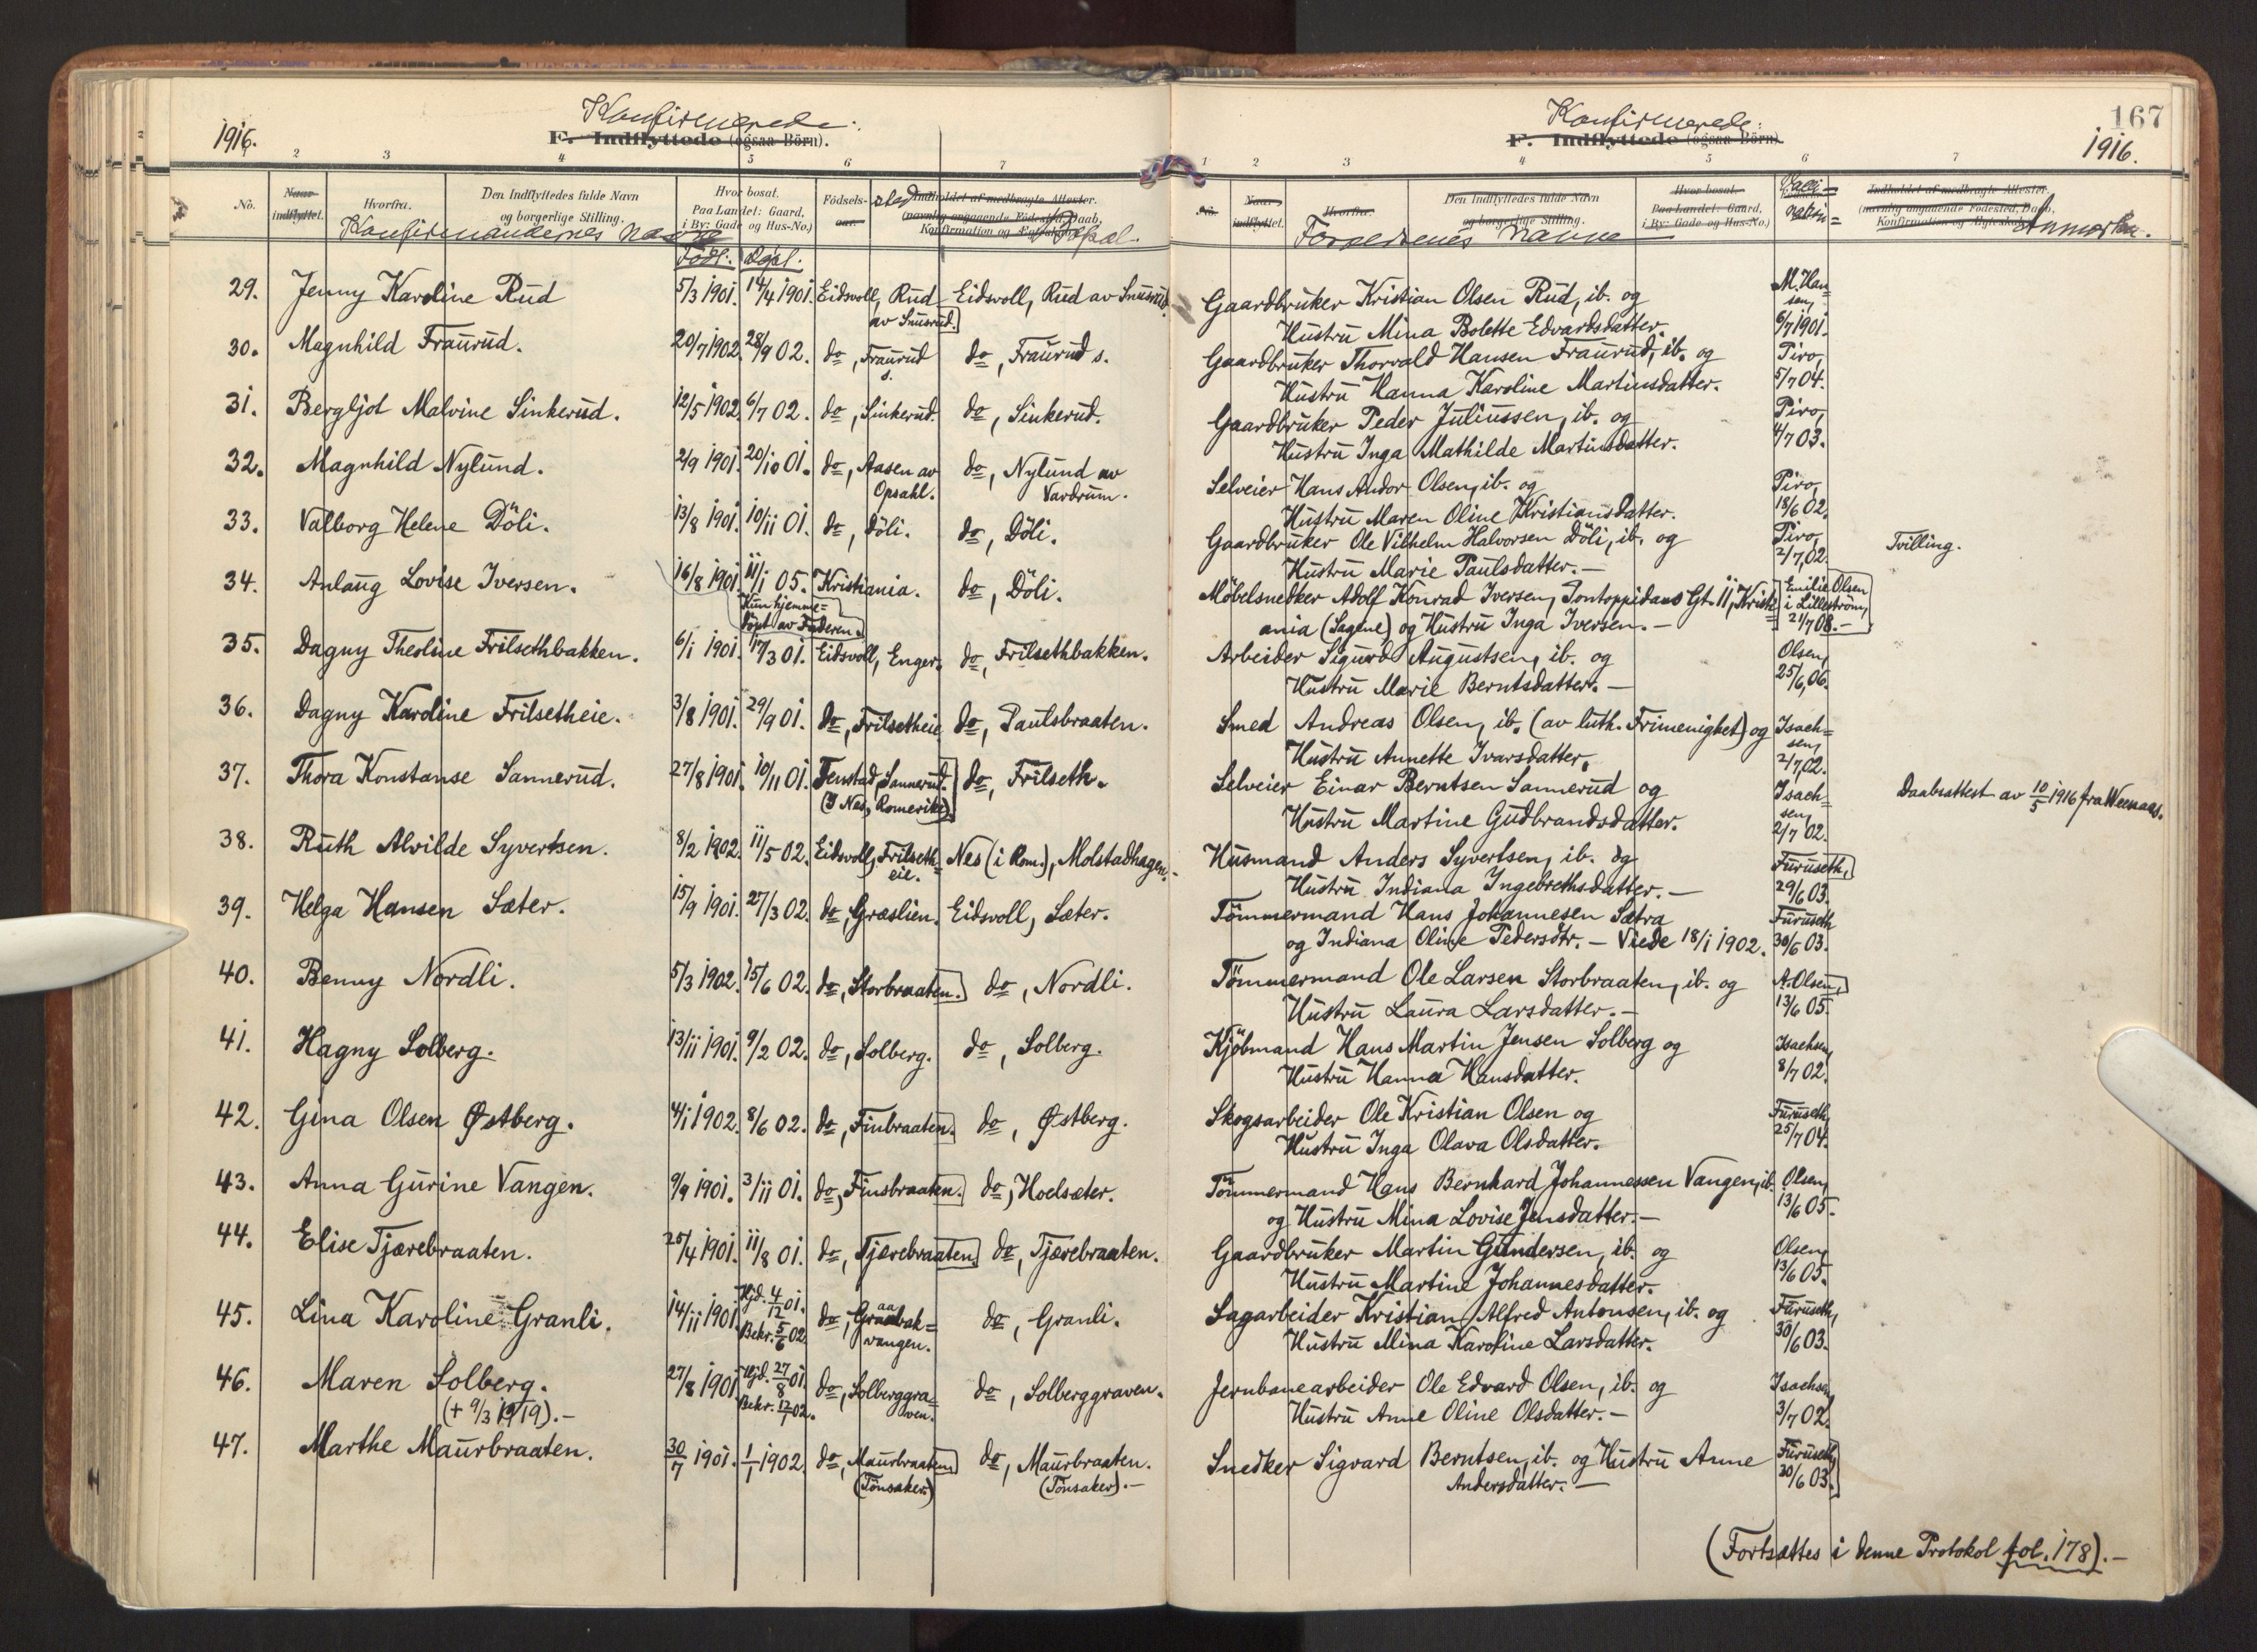 1916.
Konfirmerede:
F. Indflyttede (ogsaa Börn).
2 3 4 5 6 7
No. Naar indflyttet. Hvorfra. Den Indflyttedes fulde Navn og borgerlige Stilling. Hvor bosat. Paa Landet: Gaard, i By: Gade og Hus-No.) Fødsels-aar. sted Indholdet af medbragte Attester. (navnlig angaaende Fødested, Daab, Konfirmation og Ægteskab)
Konfirmandernes Navne Født: Døpt:
29. Jenny Karoline Rud 5/3 1901. 14/4 1901. Eidsvoll, Rud av Snusrud. Eidsvoll, Rud av Snusrud.
30. Magnhild Fraurud. 20/7 1902. 28/9 02. do, Fraurud s. do, Fraurud s.
31. Bergljot Malvine Sinkerud. 12/5 1902. 6/7 02. do, Sinkerud. do, Sinkerud.
32. Magnhild Nylund. 2/9 1901. 20/10 01. do, Aasen av Opsahl. do, Nylund av Vardrum.
33. Valborg Helene Döli. 13/8 1901. 10/11 01. do, Döli. do, Döli.
34. Anlaug Lovise Iversen. 16/8 1901. 11/1 05. Kun hjemme=døpt av Faderen. Kristiania. do, Döli.
35. Dagny Theoline Frilsethbakken. 6/1 1901. 17/3 01. Eidsvoll, Enger. do, Frilsethbakken.
36. Dagny Karoline Frilsetheie. 3/8 1901. 29/9 01. do, Frilsetheie do, Paulsbraaten.
37. Thora Konstanse Sannerud. 27/8 1901. 10/11 01. Tenstad, Sannerud. (I Nes, Romerike) do, Frilseth.
38. Ruth Alvilde Syvertsen. 8/2 1902. 11/5 02. Eidsvoll, Frilseth=eie. Nes (i Rom.), Molstadhagen.
39. Helga Hansen Sæter. 15/9 1901. 27/3 02. do, Græslien. Eidsvoll, Sæter.
40. Benny Nordli. 5/3 1902. 15/6 02. do, Storbraaten. do, Nordli.
41. Hagny Solberg. 13/11 1901. 9/2 02. do, Solberg. do, Solberg.
42. Gina Olsen Østberg. 4/1 1902. 8/6 02. do, Finbraaten. do, Østberg.
43. Anna Gurine Vangen. 9/9 1901. 3/11 01. do, Finsbraaten. do, Hoelsæter.
44. Elise Tjærebraaten. 25/4 1901. 11/8 01. do, Tjærebraaten. do, Tjærebraaten.
45. Lina Karoline Granli. 14/11 1901. Hjd. 4/12 01. Bekr. 5/6 02. do, Graabak=vangen. do, Granli.
46. Maren Solberg. 27/8 1901. Hjd. 27/8 01. Bekr. 12/1 02. do, Solberggra=ven. do, Solberggraven.
(+ 9/3 1919).-
47. Marthe Maurbraaten. 30/7 1901. 1/1 1902. do, Maurbraaten (Tönsaker) do, Maurbraaten. (Tönsaker).-
167
Konfirmerede:
F. Indflyttede (ogsaa Börn).
1916.
1 2 3 4 5 6 7
No. Naar indflyttet. Hvorfra. Den Indflyttedes fulde Navn og borgerlige Stilling. Hvor bosat. Paa Landet: Gaard, i By: Gade og Hus-No.) Indholdet af medbragte Attester. (navnlig angaaende Fødested, Daab, Konfirmation og Ægteskab)
Navne
Gaardbruker Kristian Olsen Rud, ib. og M. Han=sen,
Hustru Mina Bolette Edvardsdatter. 6/7 1901.
Gaardbruker Thorvald Hansen Fraurud, ib. og Piro,
Hustru Hanna Karoline Martinsdatter. 5/7 04.
Gaardbruker Peder Juliussen, ib. og Piro,
Hustru Inga Mathilde Martinsdatter. 4/7 03.
Selveier Hans Andor Olsen, ib. og Piro,
Hustru Maren Oline Kristiansdatter. 18/6 02.
Gaardbruker Ole Vilhelm Halvorsen Döli, ib. og Piro, Tvilling.
Hustru Marie Paulsdatter.- 2/7, 02.
Möbelsnedker Adolf Konrad Iversen, Pontoppidans Gt. 11, Kristi= Emilie Olsen i Lilleström,
ania (Sagene) og Hustru Inga Iversen.- 21/7 08.-
Arbeider Sigurd Augustsen, ib. og Olsen,
Hustru Marie Berntsdatter.- 25/6, 06.
Smed Andreas Olsen, ib. (av luth. Frimenighet) og Isach=sen,
Hustru Annette Ivarsdatter. 2/7, 02.
Selveier Einar Berntsen Sannerud og Isach=sen, Daabsattest av 10/5 1916 fra
Hustru Martine Gudbrandsdatter. 2/7 02.
Husmand Anders Syvertsen, ib. og Furuseth,
Hustru Indiana Ingebrethsdatter.- 29/6 03.
Tömmermand Hans Johannesen Sætra Furuseth
og Indiana Oline Pedersdtr. - Viede 18/1 1902. 30/6 03.
Tömmermand Ole Larsen Storbraaten, ib. og A. Olsen,
Hustru Laura Larsdatter.- 13/6 05.
Kjöbmand Hans Martin Jensen Solberg og Isachsen,
Hustru Hanna Hansdatter. 8/7 02.
Skogsarbeider Ole Kristian Olsen og Furuseth,
Hustru Inga Olava Olsdatter. 25/7 04.
Tömmermand Hans Bernhard Johannessen Vangen, ib. Olsen,
og Hustru Mina Lovise Jensdatter.- 13/6 05.
Gaardbruker Martin Gundersen, ib. og Olsen,
Hustru Martine Johannesdatter. 13/6 05.
Sagarbeider Kristian Alfred Antonsen, ib. og Furuseth,
Hustru Mina Karoline Larsdatter. 30/6 03.
Jernbanearbeider Ole Edvard Olsen, ib. og Isachsen,
Hustru Anne Oline Olsdatter.- 3/7 02.
Snedker Sigvard Berntsen, ib. og Hustru Anne Furuseth,
Andersdatter.- 20/6 03.
(Fortsættes i denne Protokol fol. 178).-